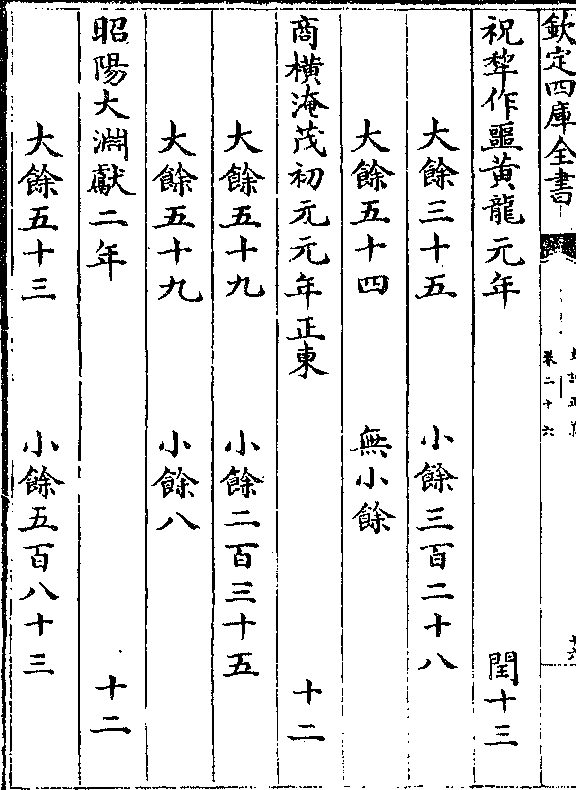 欽定四庫全書
卷二十六
祝犂作噩黃龍元年 閏十三
大餘三十五 小餘三百二十八
大餘五十四 無小餘
商橫淹茂初元元年正東 十二
大餘五十九 小餘二百三十五
大餘五十九 小餘八
昭陽大淵獻二年 十二
大餘五十三 小餘五百八十三